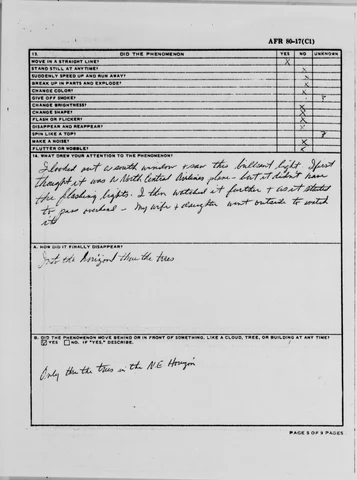 AFR 80-17(C1)
13. DID THE PHENOMENON YES NO UNKNOWN
MOVE IN A STRAIGHT LINE? X
STAND STILL AT ANYTIME? X
SUDDENLY SPEED UP AND RUN AWAY? X
BREAK UP IN PARTS AND EXPLODE? X
CHANGE COLOR? X
GIVE OFF SMOKE? ?
CHANGE BRIGHTNESS? X
CHANGE SHAPE? X
FLASH OR FLICKER? X
DISAPPEAR AND REAPPEAR? X
SPIN LIKE A TOP? ?
MAKE A NOISE? X
FLUTTER OR WOBBLE? X
14. WHAT DREW YOUR ATTENTION TO THE PHENOMENON?
I looked out a south window & saw this brilliant light. I first
thought it was a North Central Airlines plane - but it didn't have
the flashing lights. I then watched it further & as it started
to pass overhead - My wife & daughter went outside to watch
it
A. HOW DID IT FINALLY DISAPPEAR?
Into the Horizon thru the trees
B. DID THE PHENOMENON MOVE BEHIND OR IN FRONT OF SOMETHING, LIKE A CLOUD, TREE, OR BUILDING AT ANY TIME?
YES NO. IF "YES," DESCRIBE.
Only thru the trees in the N.E. Horizon
PAGE 5 OF 9 PAGES